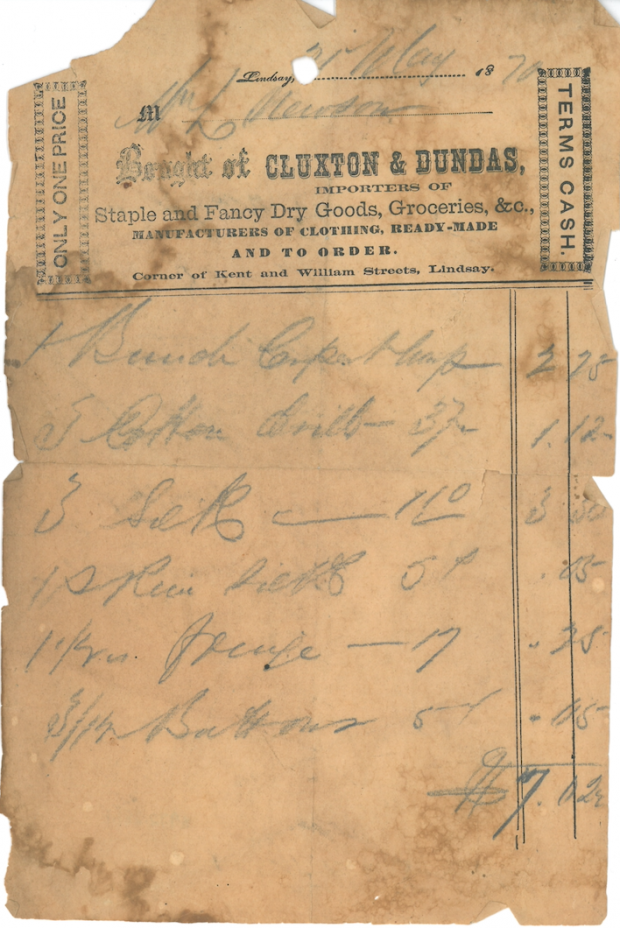 Lindsay, 21 May 1870
M
Bought of CLUXTON & DUNDAS,
IMPORTERS OF
Staple and Fancy Dry Goods, Groceries, &c.,
MANUFACTURERS OF CLOTHING, READY-MADE
AND TO ORDER.
Corner of Kent and William Streets, Lindsay.
ONLY ONE PRICE
TERMS CASH.
1 Bunch Carpet Warp 2 25
Cotton 1.12
3 Silk — 1 10 3 30
1 Skein Silk 5 .05
Fringe — 17 .25
Buttons 5 .05
$7.02